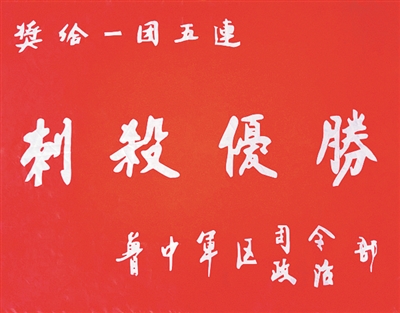 奬给一团五連
刺殺優勝
鲁中軍区司令政治部